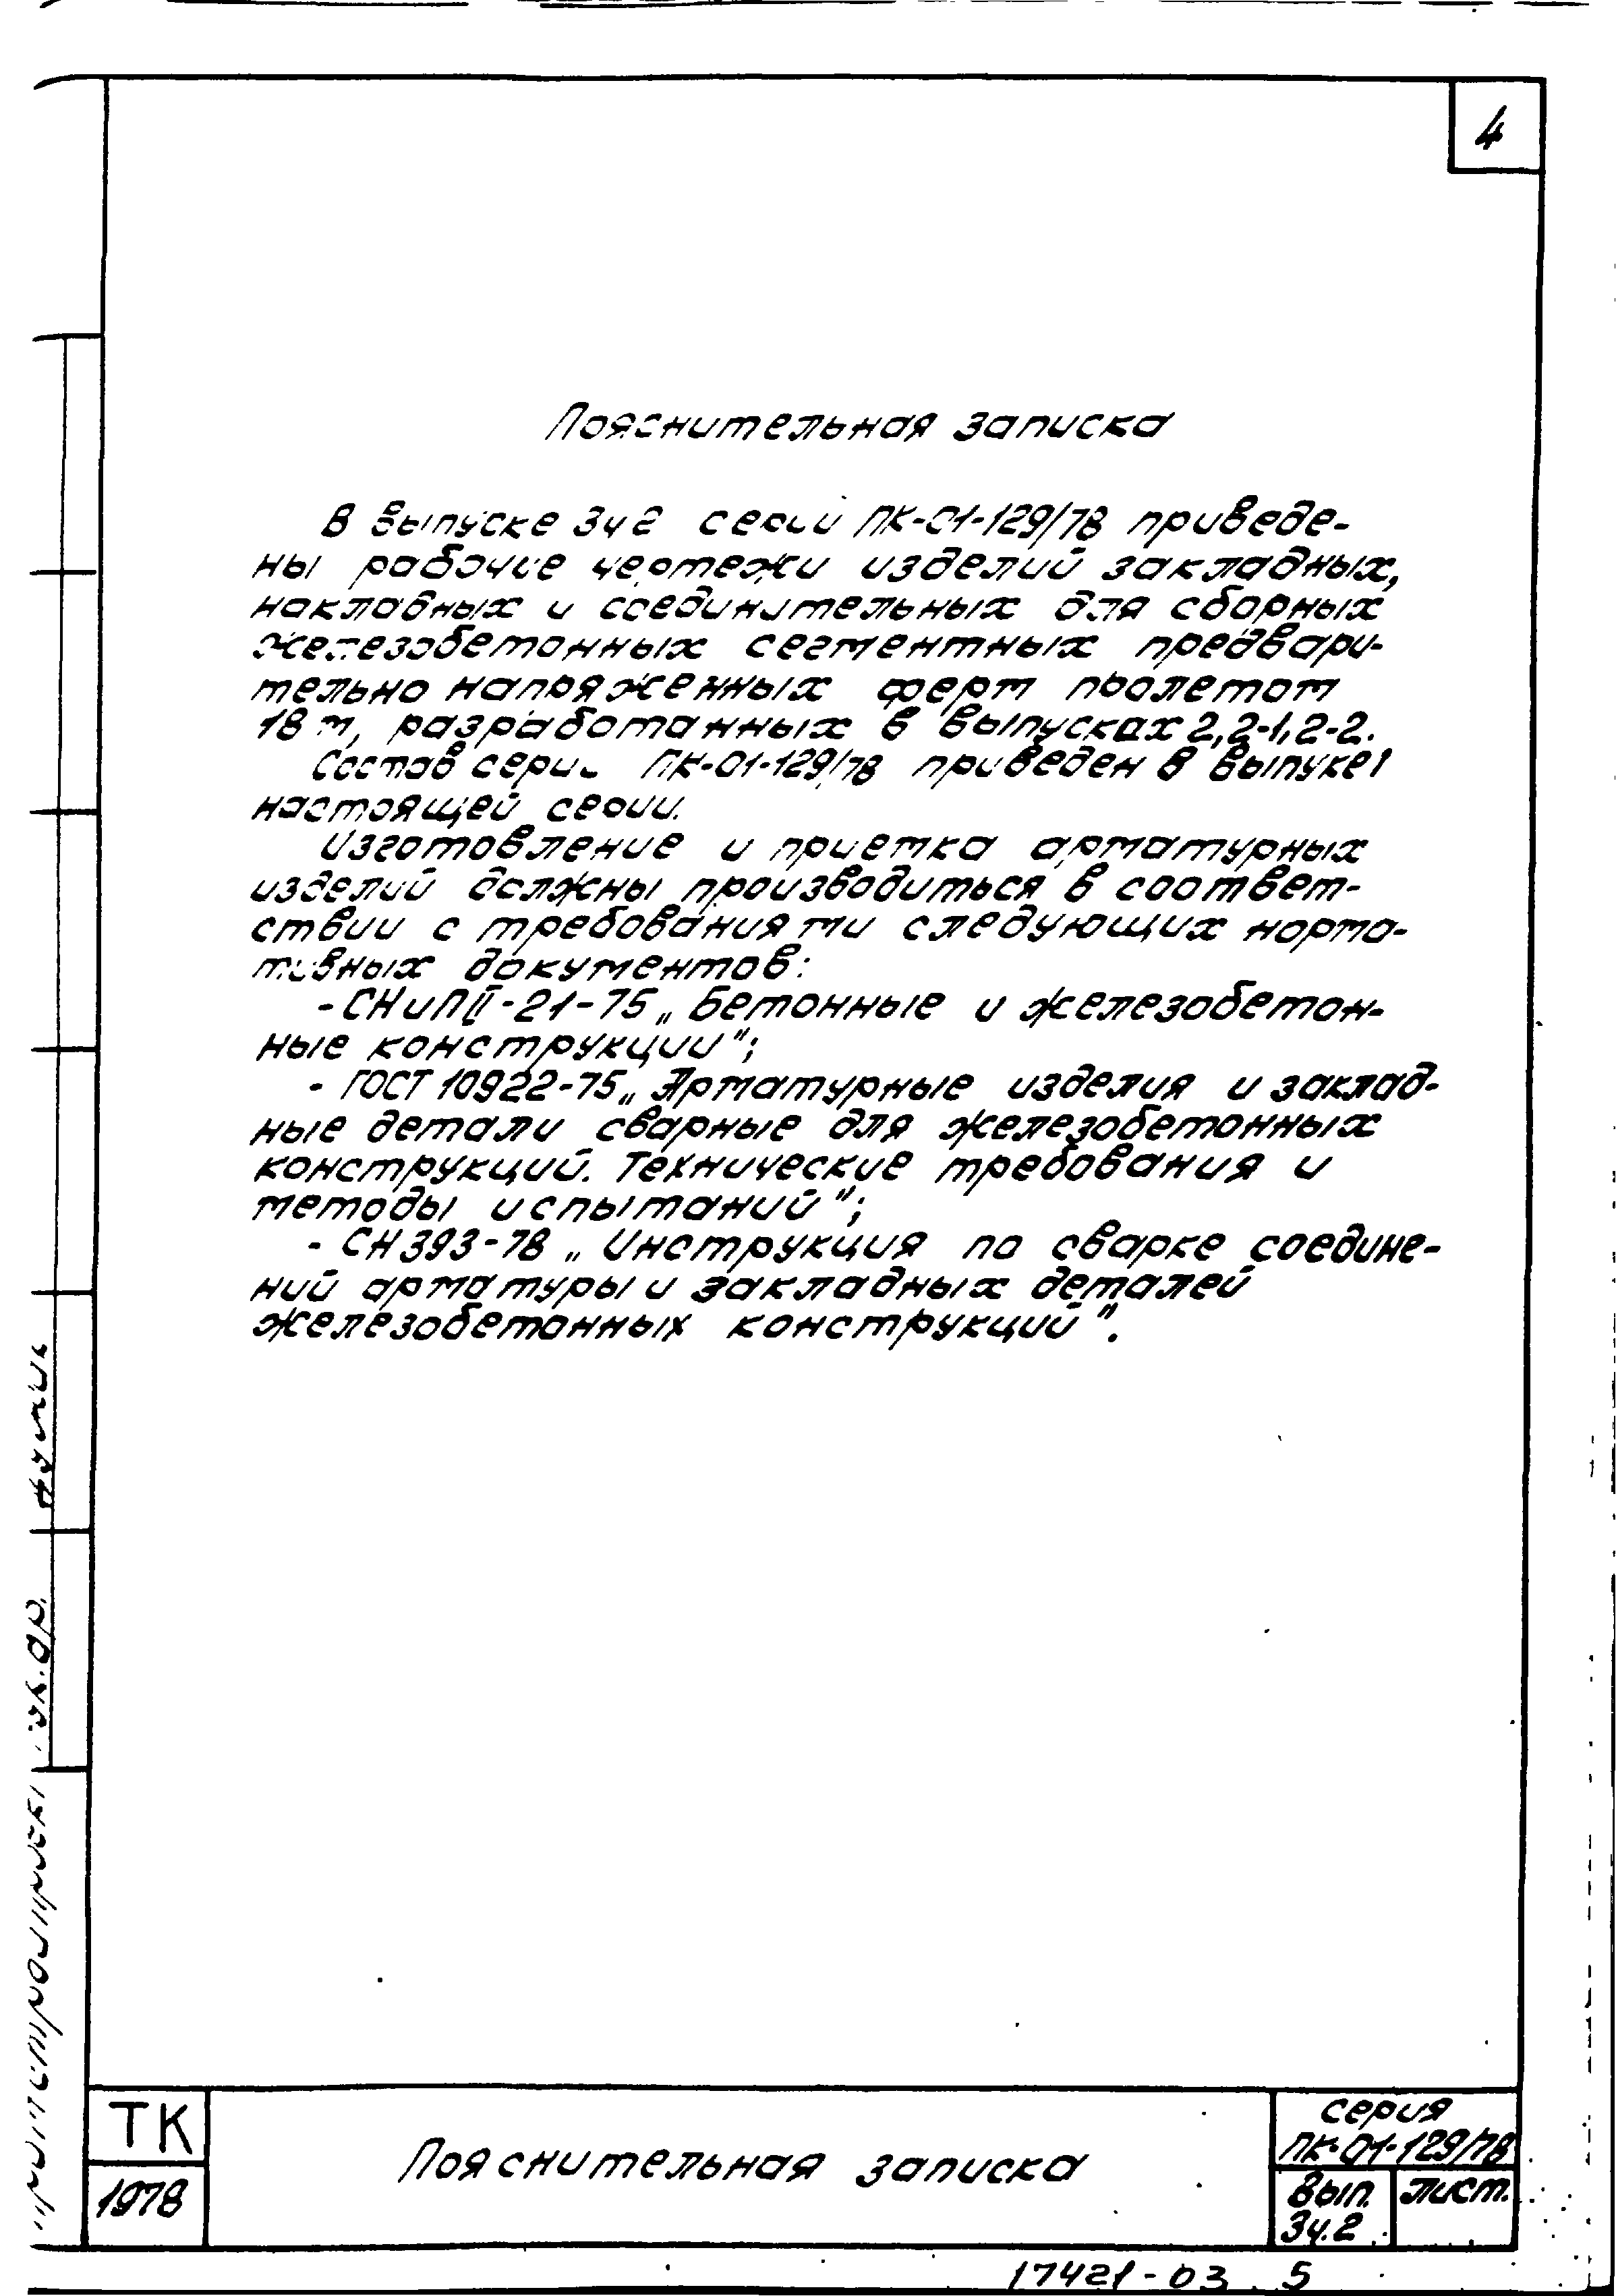 4
Пояснительная записка
В выпуске 3ч2 серии ПК-01-129/78 приведе-
ны рабочие чертежи изделий закладных,
накладных и соединительных для сборных
железобетонных сегментных предвари-
тельно напряженных ферм пролетом
18 м, разработанных в выпусках 2, 2-1, 2-2.
Состав серии ПК-01-129/78 приведен в выпуке 1
настоящей серии.
Изготовление и приемка арматурных
изделий должны производиться в соответ-
ствии с требованиями следующих норма-
тивных документов:
- СНиП II-21-75 „Бетонные и железобетон-
ные конструкции";
- ГОСТ 10922-75 „Арматурные изделия и заклад-
ные детали сварные для железобетонных
конструкций. Технические требования и
методы испытаний";
- СН 393-78 „Инструкция по сварке соедине-
ний арматуры и закладных деталей
железобетонных конструкций".
ТК
1978
Пояснительная записка
серия
ПК-01-129/78
Вып.
3ч.2
лист.
17421-03 5